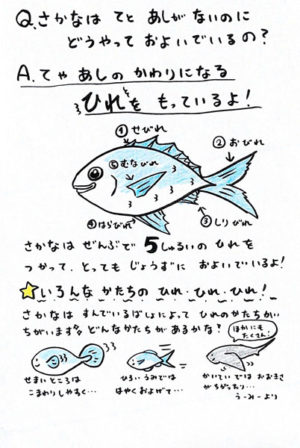 Q.さかなは てと あしが ないのに
どうやって およいでいるの?
A.てや あしの かわりになる
ひれを もっているよ!
①せびれ
②おびれ
⑤むなびれ
④はらびれ
③しりびれ
さかなは ぜんぶで 5しゅるいの ひれを
つかって、とっても じょうずに およいでいるよ!
いろんな かたちの ひれ・ひれ・ひれ!
さかなは すんでいるばしょによって ひれのかたちがい
ちがいます。どんなかたちが あるかな?
ほかにも
たくさん!
せまいところは
こまわりしやすく…
ひろいうみでは
はやくおよげて…
かいていでは おおきさ
がちがったり…
うーみーより